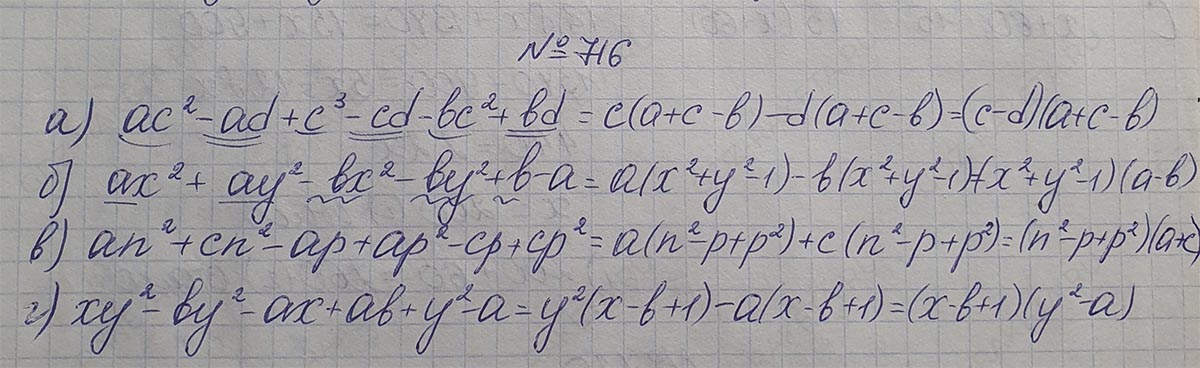 № 716
а) ac² - ad + c³ - cd - bc² + bd = c(a+c-b) - d(a+c-b) = (c-d)(a+c-b)
б) ax² + ay² - bx² - by² + b - a = a(x²+y²-1) - b(x²+y²-1) = (x²+y²-1)(a-b)
в) an² + cn² - ap + ap² - cp + cp² = a(n²-p+p²) + c(n²-p+p²) = (n²-p+p²)(a+c)
г) xy² - by² - ax + ab + y² - a = y²(x-b+1) - a(x-b+1) = (x-b+1)(y²-a)